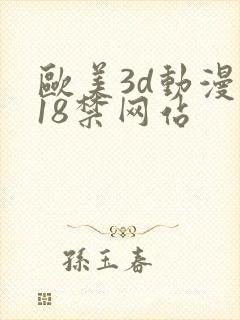 歐美3d動漫
18禁网佔
孫玉春